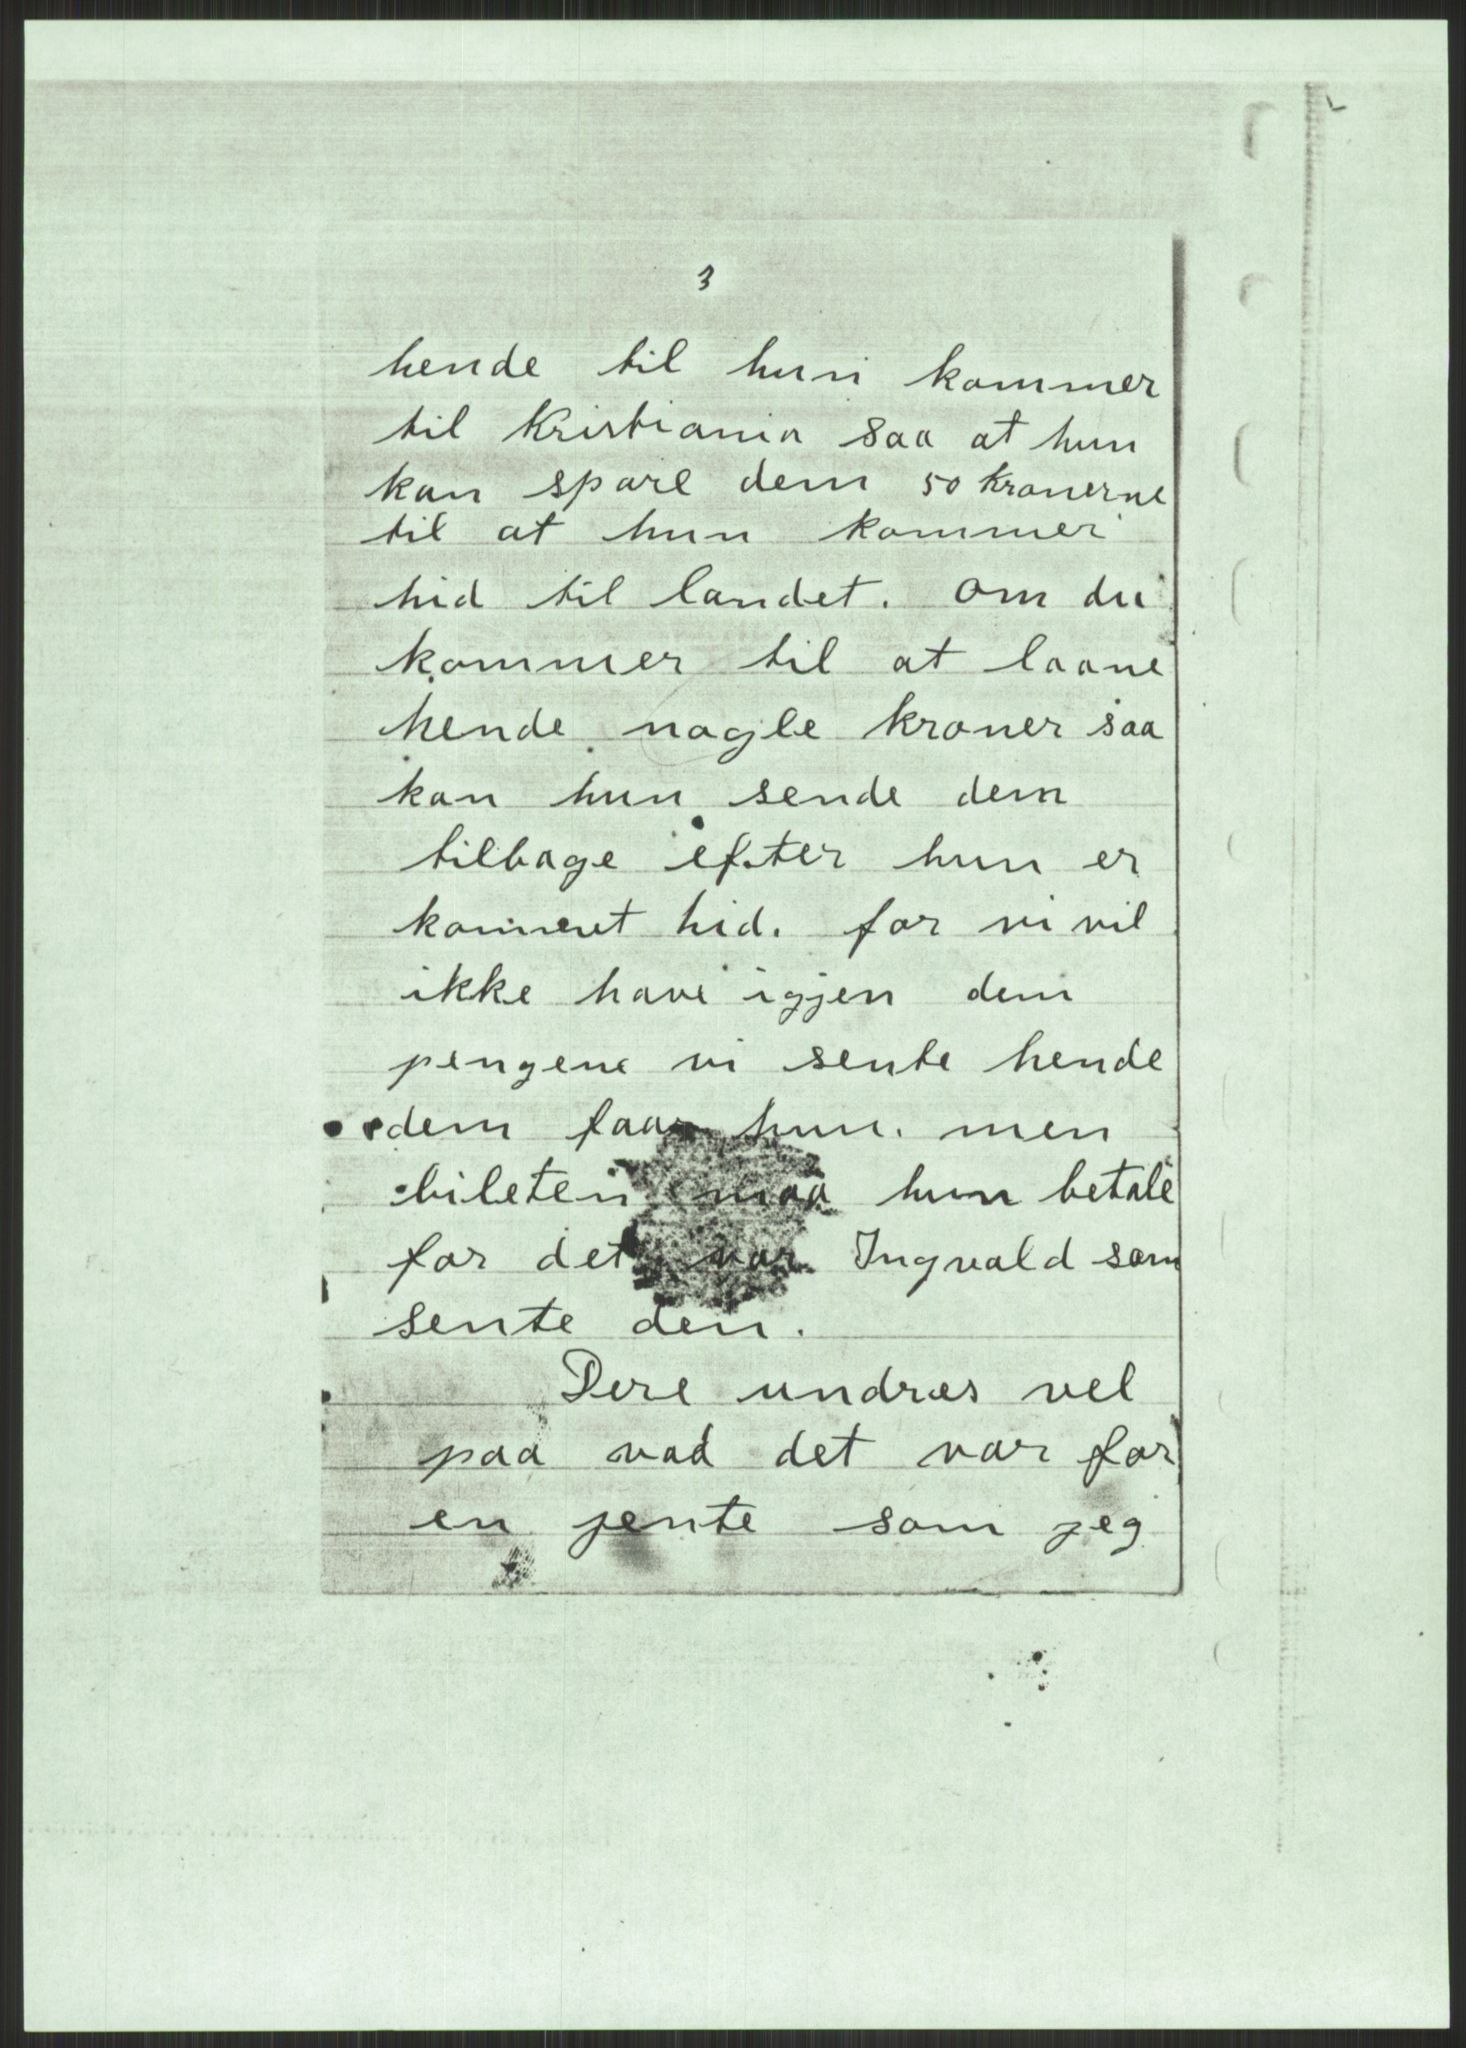 3
hende til hun kommer
til Kristiania saa at hun
kan spare dem 50 kronerne
til at hun kommer
hid til landet. Om du
kommer til at laane
hende nogle kroner saa
kan hun sende dem
tilbage efter hun er
kommet hid. for vi vil
ikke have igjen dem
pengene vi sente hende
dem faar hun. men
bileten maa hun betale
for det var Ingvald som
sente den.
Dere undres vel
paa vad det var for
en jente som jeg